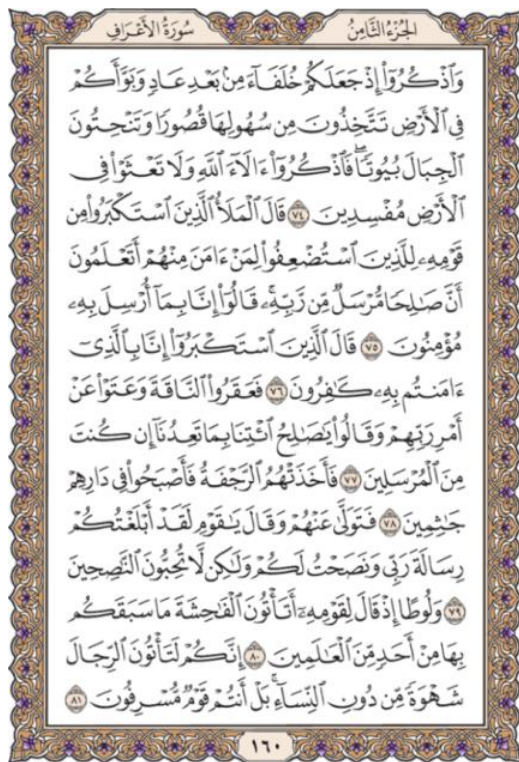 سُورَةُ الأَعۡرَافِ الجُزۡءُ الثَّامِنُ
وَٱذۡكُرُوٓاْ إِذۡ جَعَلَكُمۡ خُلَفَآءَ مِنۢ بَعۡدِ عَادٖ وَبَوَّأَكُمۡ
فِي ٱلۡأَرۡضِ تَتَّخِذُونَ مِن سُهُولِهَا قُصُورٗا وَتَنۡحِتُونَ
ٱلۡجِبَالَ بُيُوتٗاۖ فَٱذۡكُرُوٓاْ ءَالَآءَ ٱللَّهِ وَلَا تَعۡثَوۡاْ فِي
ٱلۡأَرۡضِ مُفۡسِدِينَ ٧٤ قَالَ ٱلۡمَلَأُ ٱلَّذِينَ ٱسۡتَكۡبَرُواْ مِن
قَوۡمِهِۦ لِلَّذِينَ ٱسۡتُضۡعِفُواْ لِمَنۡ ءَامَنَ مِنۡهُمۡ أَتَعۡلَمُونَ
أَنَّ صَٰلِحٗا مُّرۡسَلٞ مِّن رَّبِّهِۦۚ قَالُوٓاْ إِنَّا بِمَآ أُرۡسِلَ بِهِۦ
مُؤۡمِنُونَ ٧٥ قَالَ ٱلَّذِينَ ٱسۡتَكۡبَرُوٓاْ إِنَّا بِٱلَّذِيٓ
ءَامَنتُم بِهِۦ كَٰفِرُونَ ٧٦ فَعَقَرُواْ ٱلنَّاقَةَ وَعَتَوۡاْ عَنۡ
أَمۡرِ رَبِّهِمۡ وَقَالُواْ يَٰصَٰلِحُ ٱئۡتِنَا بِمَا تَعِدُنَآ إِن كُنتَ
مِنَ ٱلۡمُرۡسَلِينَ ٧٧ فَأَخَذَتۡهُمُ ٱلرَّجۡفَةُ فَأَصۡبَحُواْ فِي دَارِهِمۡ
جَٰثِمِينَ ٧٨ فَتَوَلَّىٰ عَنۡهُمۡ وَقَالَ يَٰقَوۡمِ لَقَدۡ أَبۡلَغۡتُكُمۡ
رِسَالَةَ رَبِّي وَنَصَحۡتُ لَكُمۡ وَلَٰكِن لَّا تُحِبُّونَ ٱلنَّٰصِحِينَ
٧٩ وَلُوطًا إِذۡ قَالَ لِقَوۡمِهِۦٓ أَتَأۡتُونَ ٱلۡفَٰحِشَةَ مَا سَبَقَكُم
بِهَا مِنۡ أَحَدٖ مِّنَ ٱلۡعَٰلَمِينَ ٨٠ إِنَّكُمۡ لَتَأۡتُونَ ٱلرِّجَالَ
شَهۡوَةٗ مِّن دُونِ ٱلنِّسَآءِۚ بَلۡ أَنتُمۡ قَوۡمٞ مُّسۡرِفُونَ ٨١
١٦٠